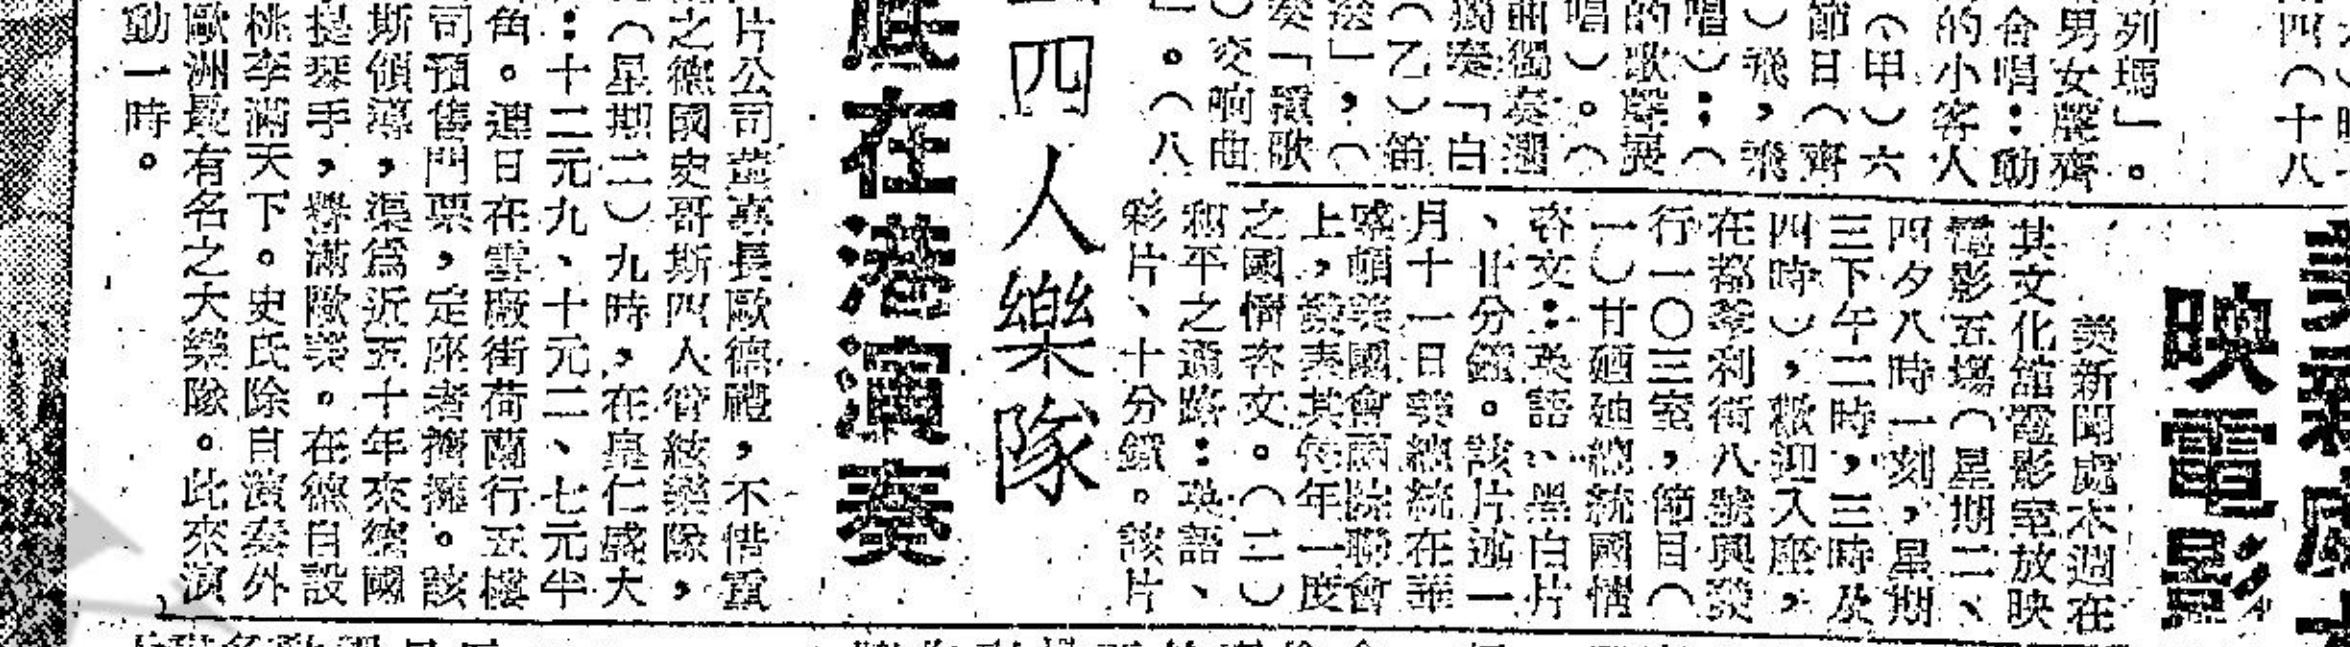 四（十八
列瑪」。
男女聲齊
合唱：動
的小客人
（甲）六
節目（齊
）飛，飛
唱）：（
的歌聲展
唱）。（
曲獨奏選
獨奏「白
（乙）笛
」，（
奏「頌歌
）交响曲
」。（八
映電影
美新聞處本週在
其文化館電影室放映
電影五場（星期二、
四夕八時一刻，星期
三下午二時，三時及
四時），歡迎入座，
在都爹利街八號興發
行一〇三室，節目（
一）甘廼廸總統國情
咨文：英語、黑白片
、廿分鐘。該片述一
月十一日美總統在華
盛頓美國會兩院聯會
上，發表其每年一度
之國情咨文。（二）
和平之道路：英語、
彩片、十分鐘。該片
四人樂隊
底在港演奏
片公司董事長歐德禮，不惜重
之德國史哥斯四人管絃樂隊，
（星期二）九時，在皇仁盛大
：十二元九、十元二、七元半
角。連日在雲廠街荷蘭行五樓
司預售門票，定座者擠擁。該
斯領導，渠爲近五十年來德國
提琴手，譽滿歐美。在德自設
桃李滿天下。史氏除自演奏外
歐洲最有名之大樂隊。此來演
動一時。